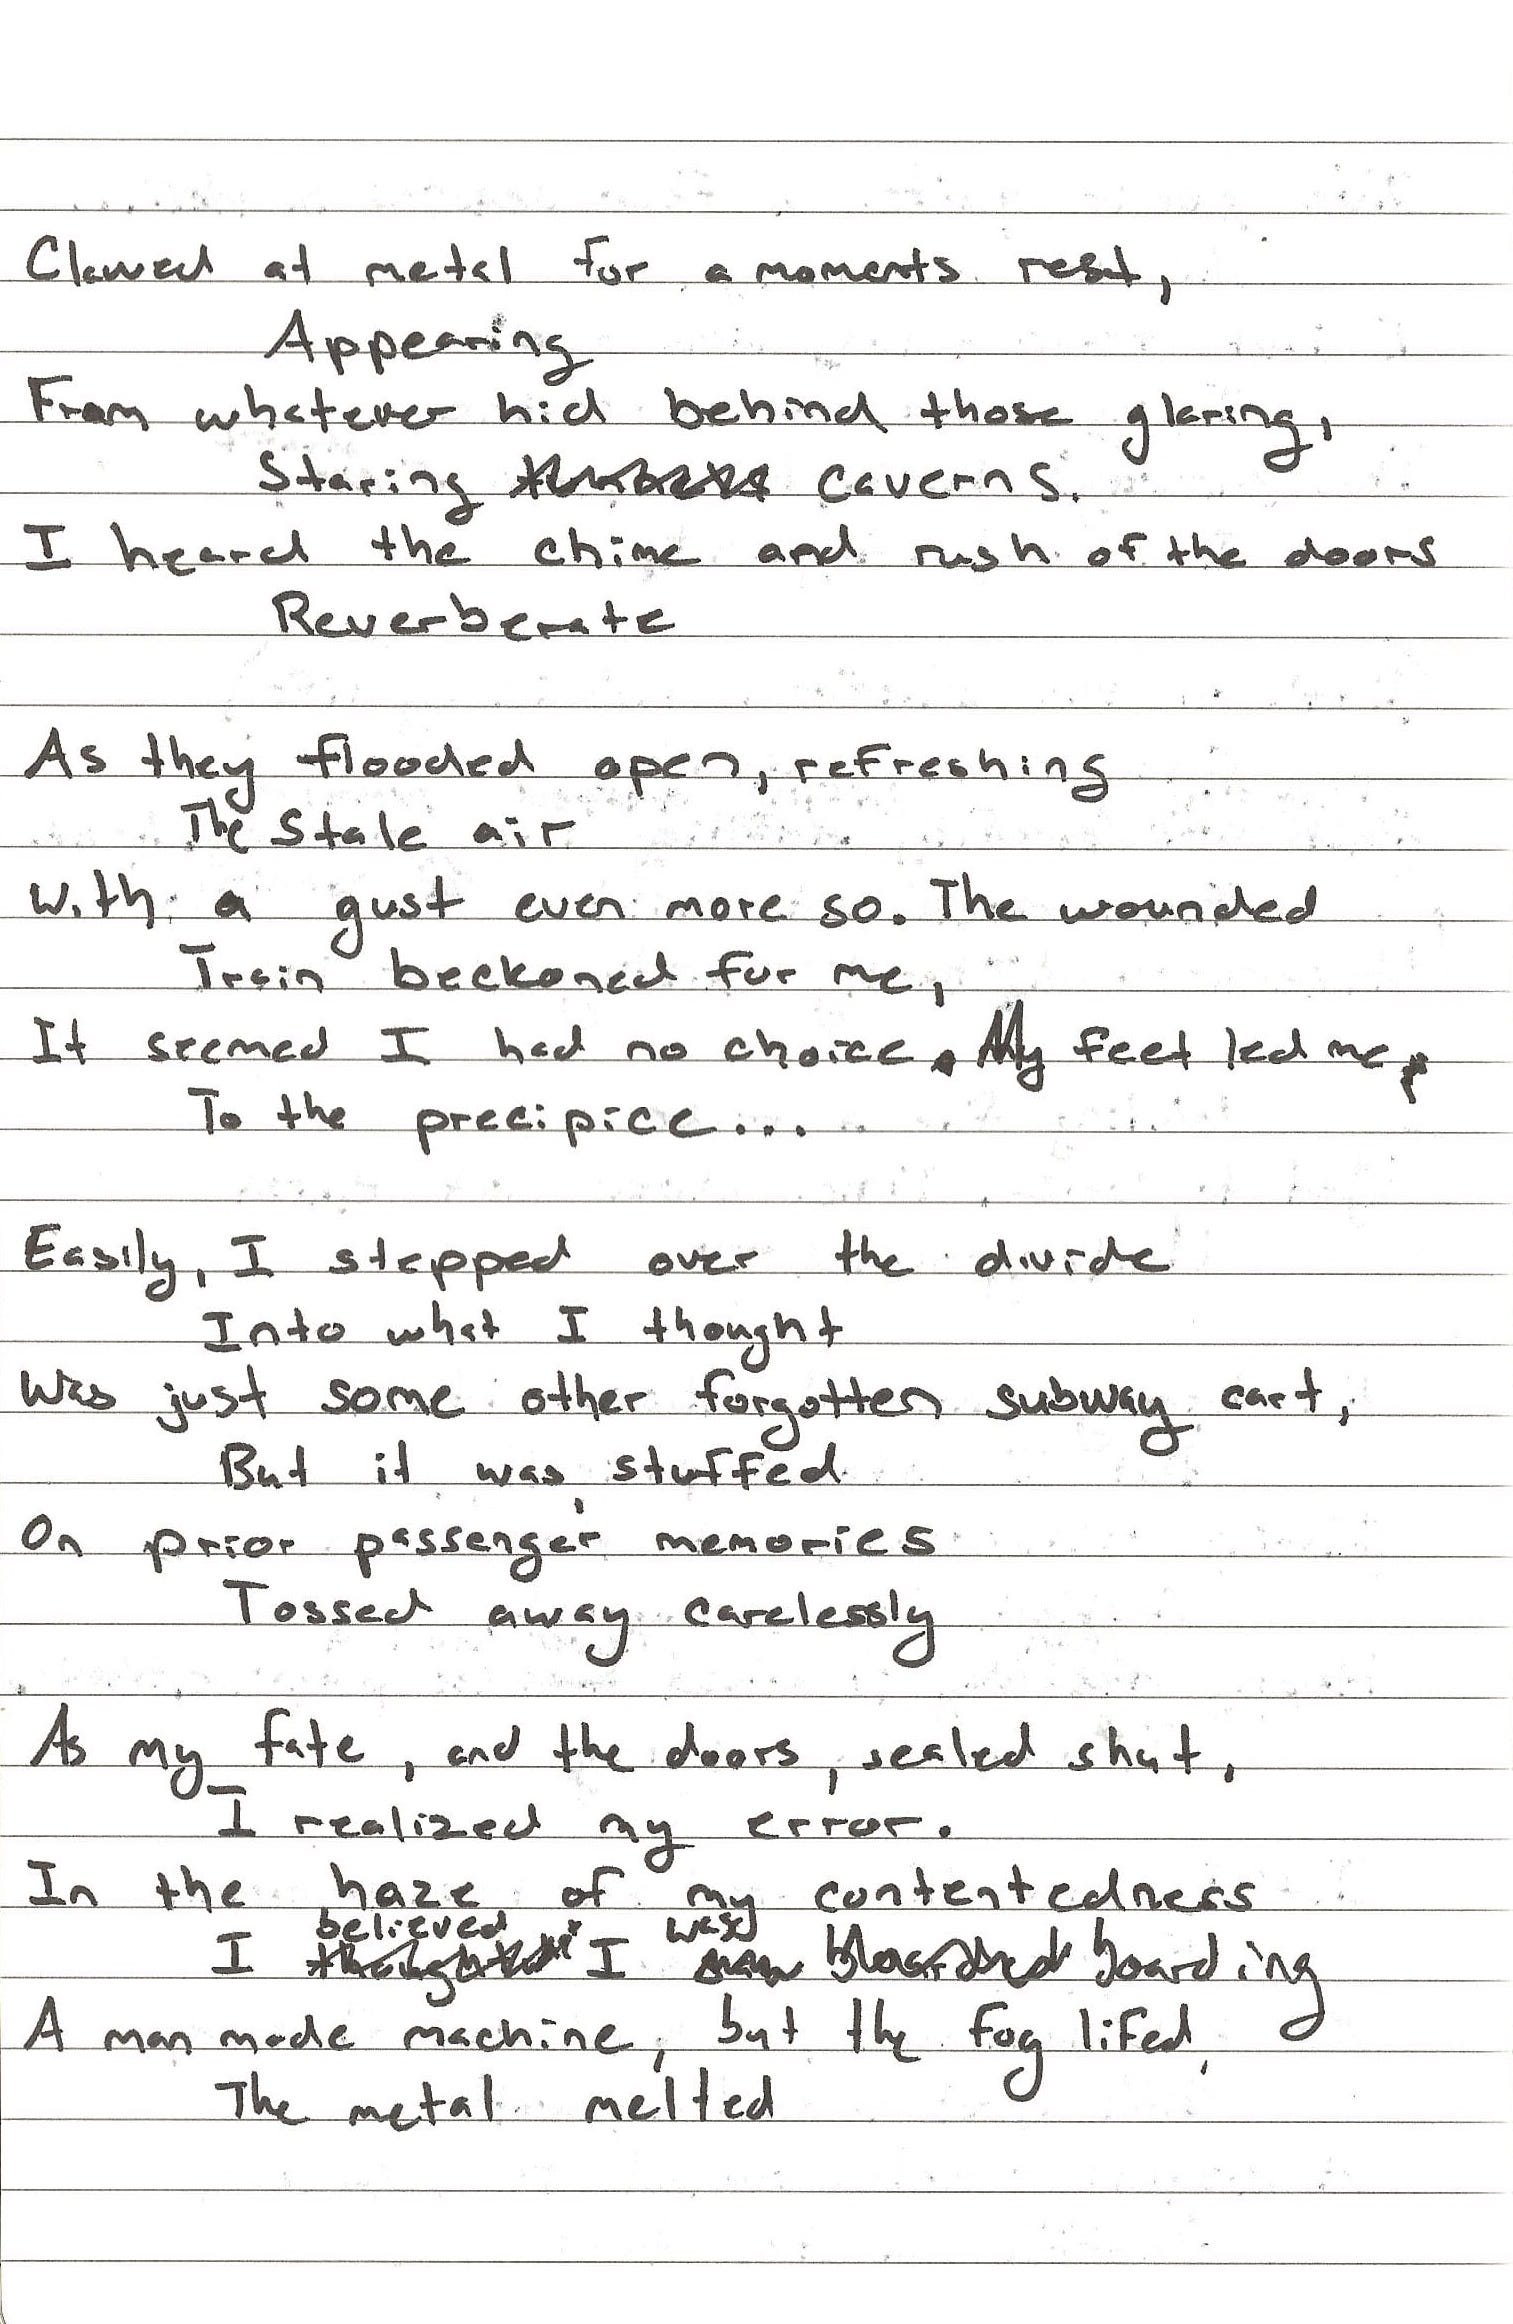 Clawed at metal for a moments rest,
Appearing
From whatever hid behind those glaring,
Staring caverns.
I heard the chime and rush of the doors
Reverberate
As they flooded open, refreshing
The stale air
With a gust even more so. The wounded
Train beckoned for me,
It seemed I had no choice. My feet led me
To the precipice...
Easily, I stepped over the divide
Into what I thought
Was just some other forgotten subway cart,
But it was stuffed
On prior passenger memories
Tossed away carelessly
As my fate, and the doors, sealed shut,
I realized my error.
In the haze of my contentedness
I believed I was boarding
A man made machine, but the fog lifed,
The metal melted